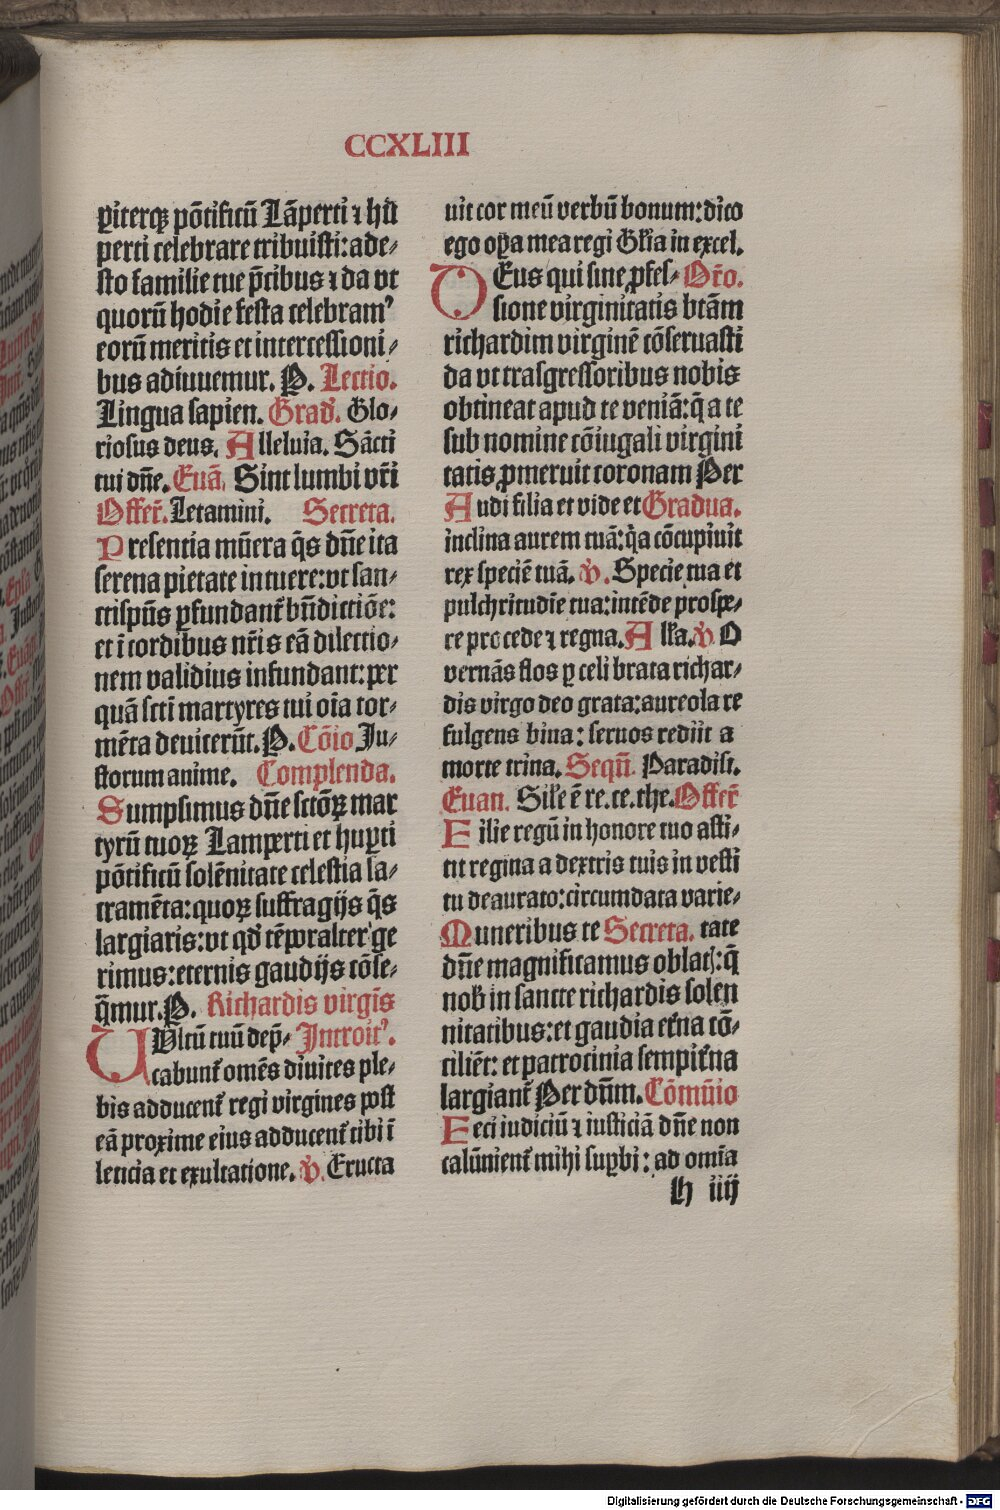 CCXLIII
ꝑiterqꝫ põtificũ Lãperti ⁊ hũ
perti celebrare tribuisti: ade⸗
sto familie tue p̃cibus ⁊ da vt
quorũ hodie festa celebramꝰ
eorũ meritis et intercessioni⸗
bus adiuuemur. P. Lectio.
Lingua sapien. Grad̃. Glo⸗
riosus deus. Alleluia. Sãcti
tui dñe. Euã. Sint lumbi vr̃i
Offer̃. Letamini. Secreta.
Presentia mũera q̃s dñe ita
serena pietate intuere: vt san⸗
ctispũs ꝑfundant̃ bñdictiõe:
et ĩ cordibus nr̃is eã dilectio⸗
nem validius infundant: per
quã scti martyres tui oĩa tor⸗
mẽta deuicerũt. P. Cõio Ju⸗
storum anime. Complenda.
Sumpsimus dñe sctõꝝ mar
tyrũ tuoꝝ Lamperti et huꝑti
põtificũ solẽnitate celestia sa⸗
cramẽta: quoꝝ suffragijs q̃s
largiaris: vt qd̃ tẽporalter ge
rimus: eternis gaudijs cõse⸗
q̃mur. P. Richardis virgĩs
Vltũ tuũ dep̃⸗ Introitꝰ.
cabunt̃ omẽs diuites ple⸗
bis adducent̃ regi virgines post
eã proxime eius adducent̃ tibi ĩ
leticia et exultatione. ꝟ. Eructa
uit cor meũ verbũ bonum: dico
ego oꝑa mea regi Gl'ia in excel.
DEus qui sine ꝓfes⸗ Or̃o.
sione virginitatis btãm
richardim virginẽ cõseruasti
da vt trãsgressoribus nobis
obtineat apud te veniã: q̃ a te
sub nomine cõiugali virgini
tatis ꝓmeruit coronam Per
Audi filia et vide et Gradua.
inclina aurem tuã: q̃a cõcupiuit
rex speciẽ tuã. ꝟ. Specie tua et
pulchritudĩe tua: intẽde prospe⸗
re procede ⁊ regna. All'a. ꝟ O
vernãs flos ꝑ celi brata richar⸗
dis virgo deo grata: aureola re
fulgens bina: seruos rediit a
morte trina. Sequẽ. Paradisi.
Euan. Sil'e ẽ re. ce. the. Offer̃
Filie regũ in honore tuo asti⸗
tit regina a dextris tuis in vesti
tu deaurato: circumdata varie⸗
Muneribus te Secreta. tate
dñe magnificamus oblatꝭ: q̃
nob̃ in sancte richardis solen
nitatibus: et gaudia et̃na cõ⸗
ciliẽt: et patrocinia sempit̃na
largiant̃ Per dñm. Cõmũio
Feci iudiciũ ⁊ iusticiã dñe non
calũnient̃ mihi suꝑbi: ad omĩa
h iiij
Digitalisierung gefördert durch die Deutsche Forschungsgemeinschaft - DFG